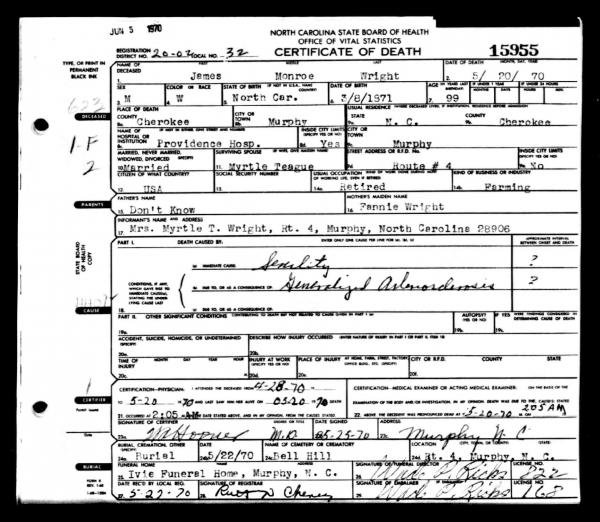 JUN 5 1970
NORTH CAROLINA STATE BOARD OF HEALTH
OFFICE OF VITAL STATISTICS
CERTIFICATE OF DEATH
15955
REGISTRATION DISTRICT NO. 20-02 LOCAL NO. 32
TYPE, OR PRINT IN PERMANENT BLACK INK
NAME OF DECEASED FIRST MIDDLE LAST DATE OF DEATH MONTH, DAY, YEAR
1. James Monroe Wright 2. 5/ 20/ 70
SEX COLOR OR RACE STATE OF BIRTH DATE OF BIRTH AGE
3. M 4. W 5. North Car. 6. 3/8/1871 7. 99
DECEASED
PLACE OF DEATH COUNTY CITY OR TOWN USUAL RESIDENCE STATE COUNTY
8a. Cherokee Murphy 9a. N. C. 9b. Cherokee
NAME OF HOSPITAL OR INSTITUTION INSIDE CITY LIMITS CITY OR TOWN
Providence Hosp. 8d. Yes Murphy
MARRIED, NEVER MARRIED, WIDOWED, DIVORCED SURVIVING SPOUSE STREET ADDRESS OR R.F.D. NO. INSIDE CITY LIMITS
10. Married 11. Myrtle Teague Route # 4 No
CITIZEN OF WHAT COUNTRY? SOCIAL SECURITY NUMBER USUAL OCCUPATION KIND OF BUSINESS OR INDUSTRY
12. USA 13. 14a. Retired Farming
PARENTS
FATHER'S NAME MOTHER'S MAIDEN NAME
15. Don't Know 16. Fannie Wright
INFORMANT'S NAME AND ADDRESS
17. Mrs. Myrtle T. Wright, Rt. 4, Murphy, North Carolina 28906
STATE BOARD OF HEALTH COPY
PART I. DEATH CAUSED BY: ENTER ONLY ONE CAUSE PER LINE APPROXIMATE INTERVAL BETWEEN ONSET AND DEATH
IMMEDIATE CAUSE Senility ?
CONDITIONS, IF ANY, WHICH GAVE RISE TO IMMEDIATE CAUSE, STATING THE UNDERLYING CAUSE LAST
DUE TO, OR AS A CONSEQUENCE OF: Generalized Arteriosclerosis ?
DUE TO, OR AS A CONSEQUENCE OF:
18.
CAUSE
PART II. OTHER SIGNIFICANT CONDITIONS AUTOPSY?
19a. 19b.
ACCIDENT, SUICIDE, HOMICIDE, OR UNDETERMINED DESCRIBE HOW INJURY OCCURRED
20a. 20b.
TIME OF INJURY HOUR INJURY AT WORK PLACE OF INJURY CITY OR R.F.D. COUNTY STATE
CERTIFIER
CERTIFICATION—PHYSICIAN: I ATTENDED THE DECEASED FROM 4-28-70 CERTIFICATION—MEDICAL EXAMINER OR ACTING MEDICAL EXAMINER.
TO 5-20-70 AND LAST SAW HIM ALIVE ON 05-20-70
21. OCCURRED AT 2:05 5-20-70 205 AM
SIGNATURE OF CERTIFIER DATE SIGNED ADDRESS
23a. W A Hoover M.D. 5-25-70 23c. Murphy N C
BURIAL
BURIAL, CREMATION, OTHER DATE NAME OF CEMETERY OR CREMATORY LOCATION
24a. Burial 5/22/70 24c. Bell Hill Rt. 4, Murphy, N. C.
FUNERAL HOME SIGNATURE OF FUNERAL DIRECTOR LICENSE NO.
25. Ivie Funeral Home, Murphy, N. C. 222
DATE REC'D BY LOCAL REG. SIGNATURE OF REGISTRAR SIGNATURE OF EMBALMER LICENSE NO.
27. 5-27-70 168